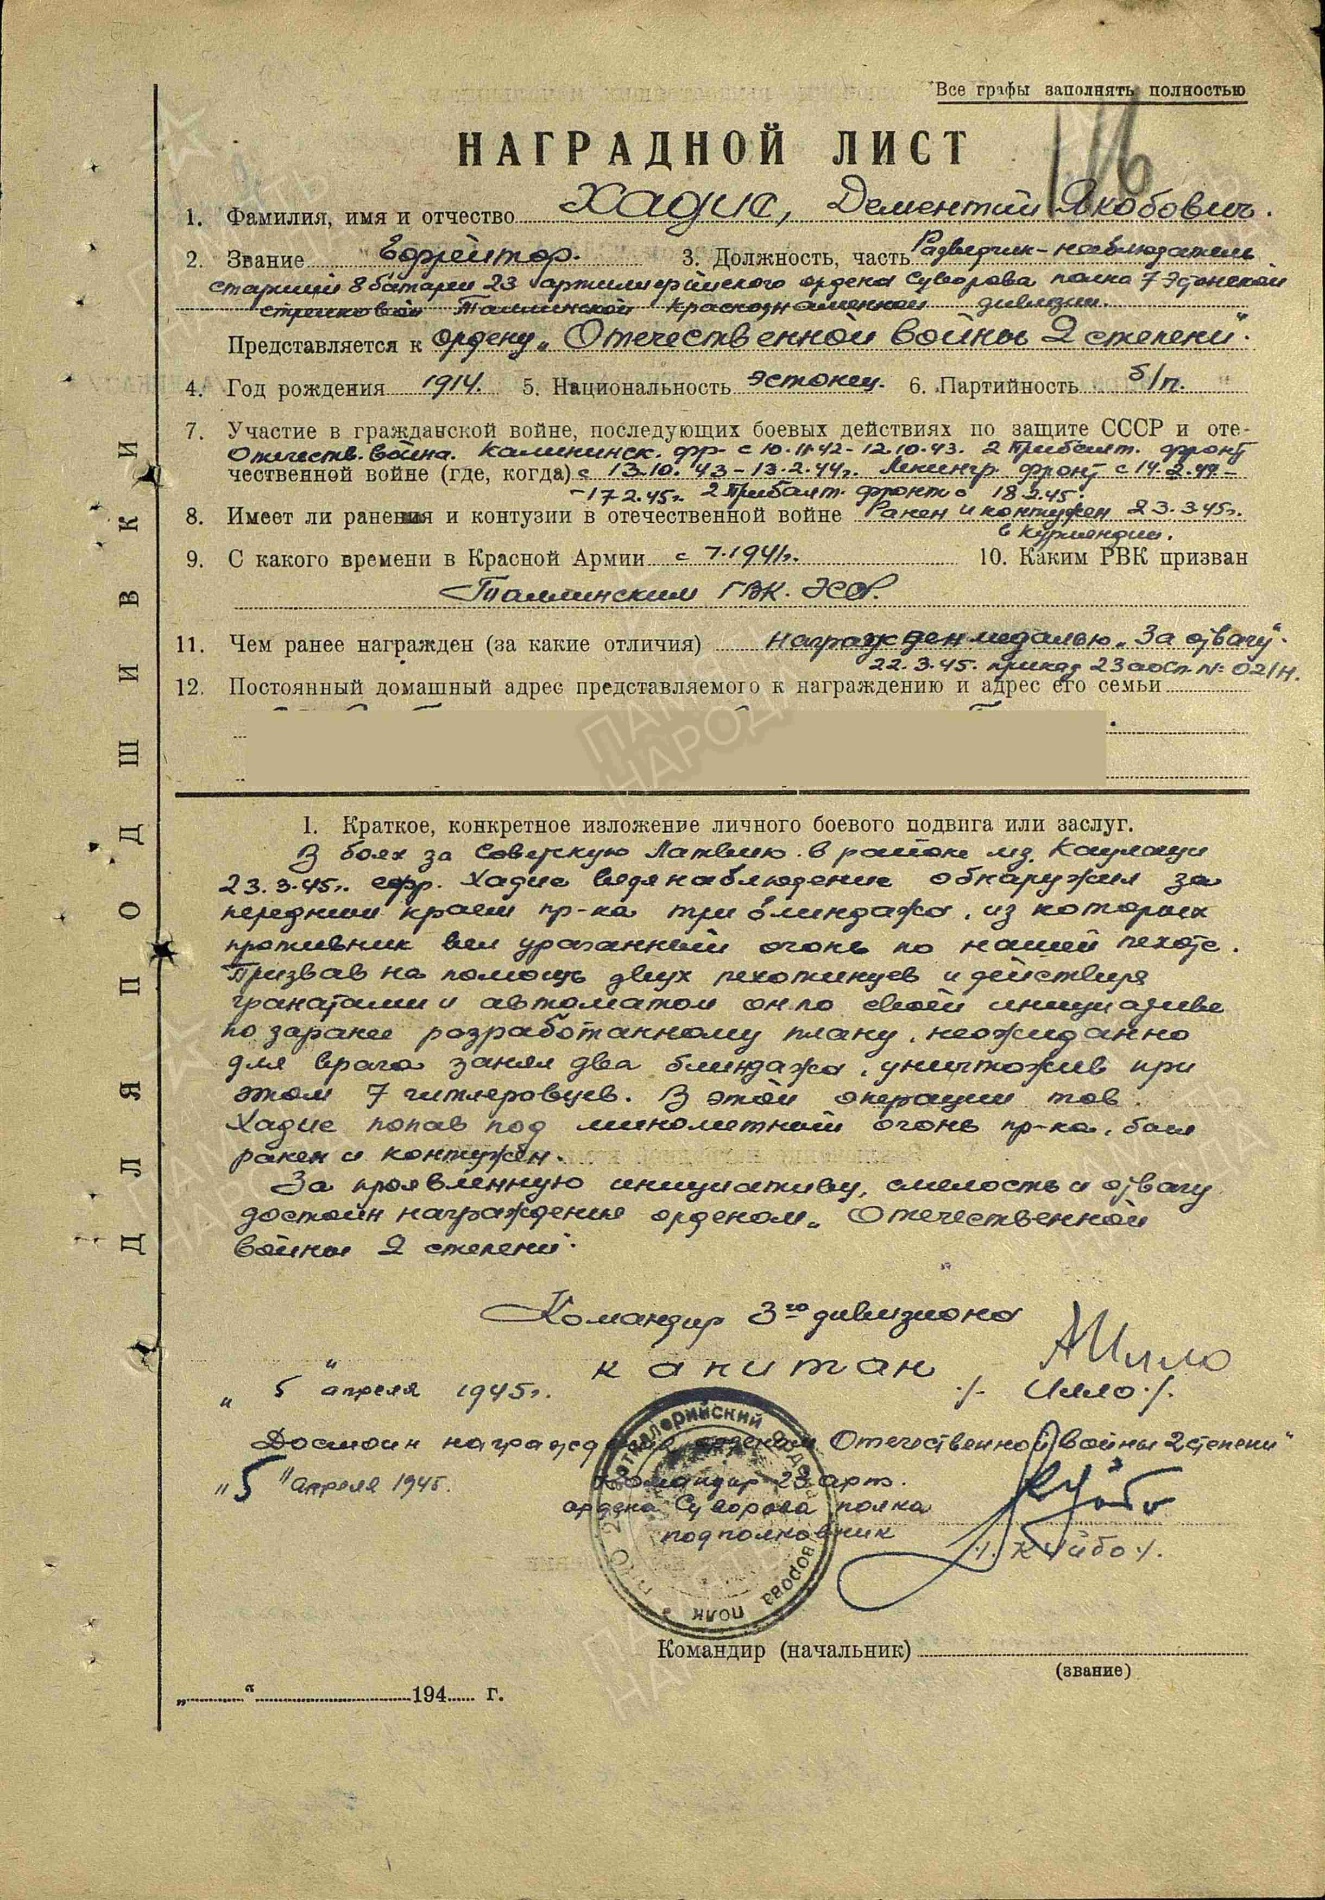 Все графы заполнять полностью
116
НАГРАДНОЙ ЛИСТ
1. Фамилия, имя и отчество Хадис, Дементий Якобович.
2. Звание Ефрейтор. 3. Должность, часть Разведчик-наблюдатель
старший 8 батареи 23 артиллерийского ордена Суворова полка 7 Эстонской
стрелковой Таллинской Краснознаменной дивизии.
Представляется к ордену „Отечественной войны 2 степени".
4. Год рождения 1914. 5. Национальность эстонец. 6. Партийность б/п.
7. Участие в гражданской войне, последующих боевых действиях по защите СССР и оте-
Отечеств. война. Калининск. фр. с 10.11.42-12.10.43. 2 Прибалт. фронт
чественной войне (где, когда) с 13.10.43-13.2.44г. Ленингр. фронт с 14.2.44-
-17.2.45г. 2 Прибалт. фронт с 18.2.45.
8. Имеет ли ранения и контузии в отечественной войне Ранен и контужен 23.3.45г.
в Курляндии.
9. С какого времени в Красной Армии с 7.1941г. 10. Каким РВК призван
Таллинским ГВК. ЭССР.
11. Чем ранее награжден (за какие отличия) награжден медалью „За отвагу".
22.3.45. приказ 23 аоСп № 021Н.
12. Постоянный домашный адрес представляемого к награждению и адрес его семьи
I. Краткое, конкретное изложение личного боевого подвига или заслуг.
В боях за Советскую Латвию в районе мз. Каулаци
23.3.45г. ефр. Хадис ведя наблюдение обнаружил за
передним краем пр-ка три блиндажа, из которых
противник вел ураганный огонь по нашей пехоте.
Призвав на помощь двух пехотинцев и действуя
гранатами и автоматом он по своей инициативе
по заранее разработанному плану, неожиданно
для врага занял два блиндажа, уничтожив при
этом 7 гитлеровцев. В этой операции тов.
Хадис попав под минометный огонь пр-ка, был
ранен и контужен.
За проявленную инициативу, смелость и отвагу
достоин награждения орденом „Отечественной
войны 2 степени".
Командир 3го дивизиона
капитан АИлло
„5" апреля 1945г. /Илло/.
Достоин награждения орденом Отечественной войны 2 степени"
„5" апреля 1945. Командир 23 арт.
ордена Суворова полка
подполковник
/Куйбо/.
23 артиллерийский ордена Суворова полк
Командир (начальник)
(звание)
„ " 194 г.
ДЛЯ ПОДШИВКИ
ПАМЯТЬ НАРОДА